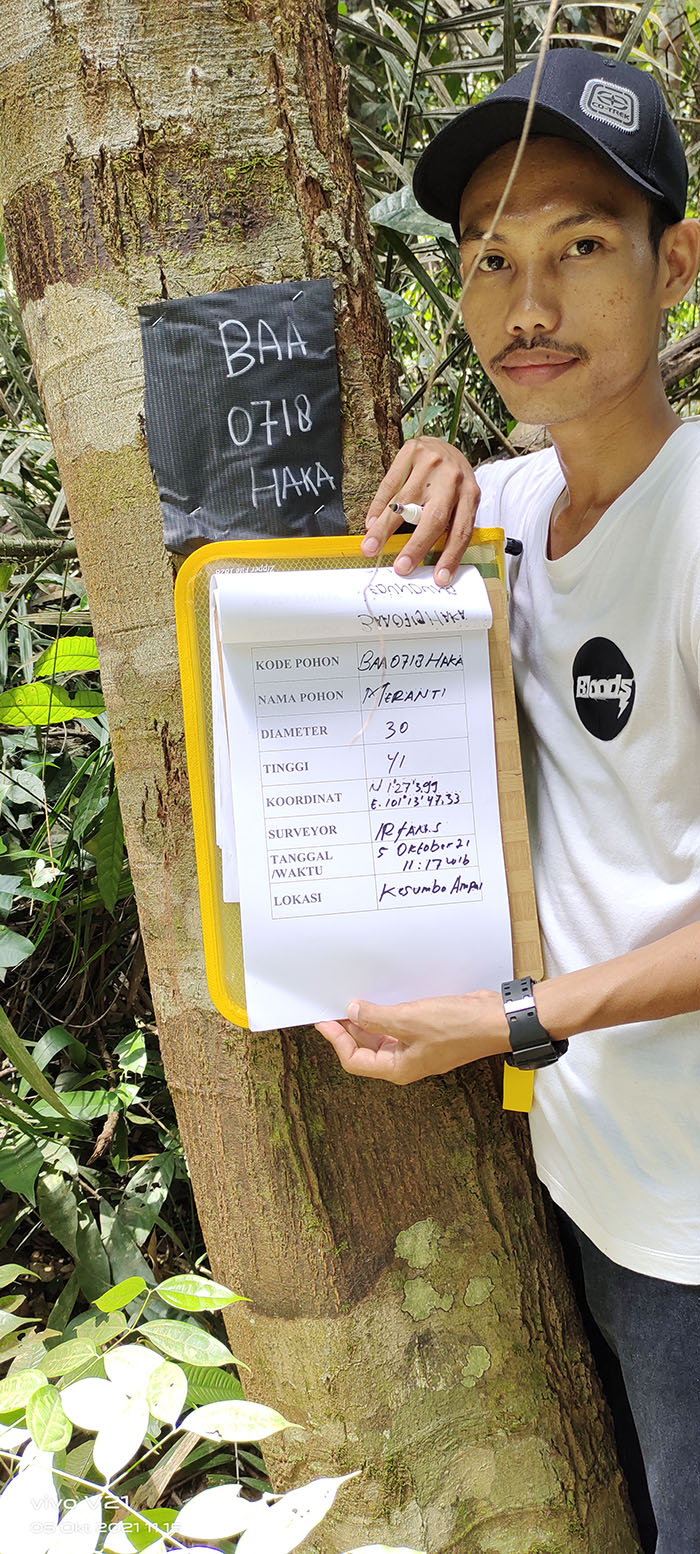 CO-TREK
BAA
0718
HAKA
Zipper File 1026
KODE POHON BAA0718HAKA
NAMA POHON MERANTI
DIAMETER 30
TINGGI 41
KOORDINAT N 1°27'3.99
E. 101°13'47.33
SURVEYOR IRFAN.S
TANGGAL 5 Oktober 21
/WAKTU 11:17 WIB
LOKASI Kesumbo Ampai
Bloods
vivo V21
05 Okt 2021 11.15